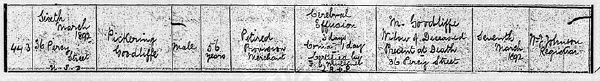 443
Sixth
March
1892
36 Percy
Street
Pickering
Goodliffe
Male
56
years
Retired
Provision
Merchant
Cerebral
Effusion
3 days
Coma 1 day
Certified by
M. Goodliffe
Widow of Deceased
Present at Death
36 Percy Street
Seventh
March
1892
Johnson
Registrar